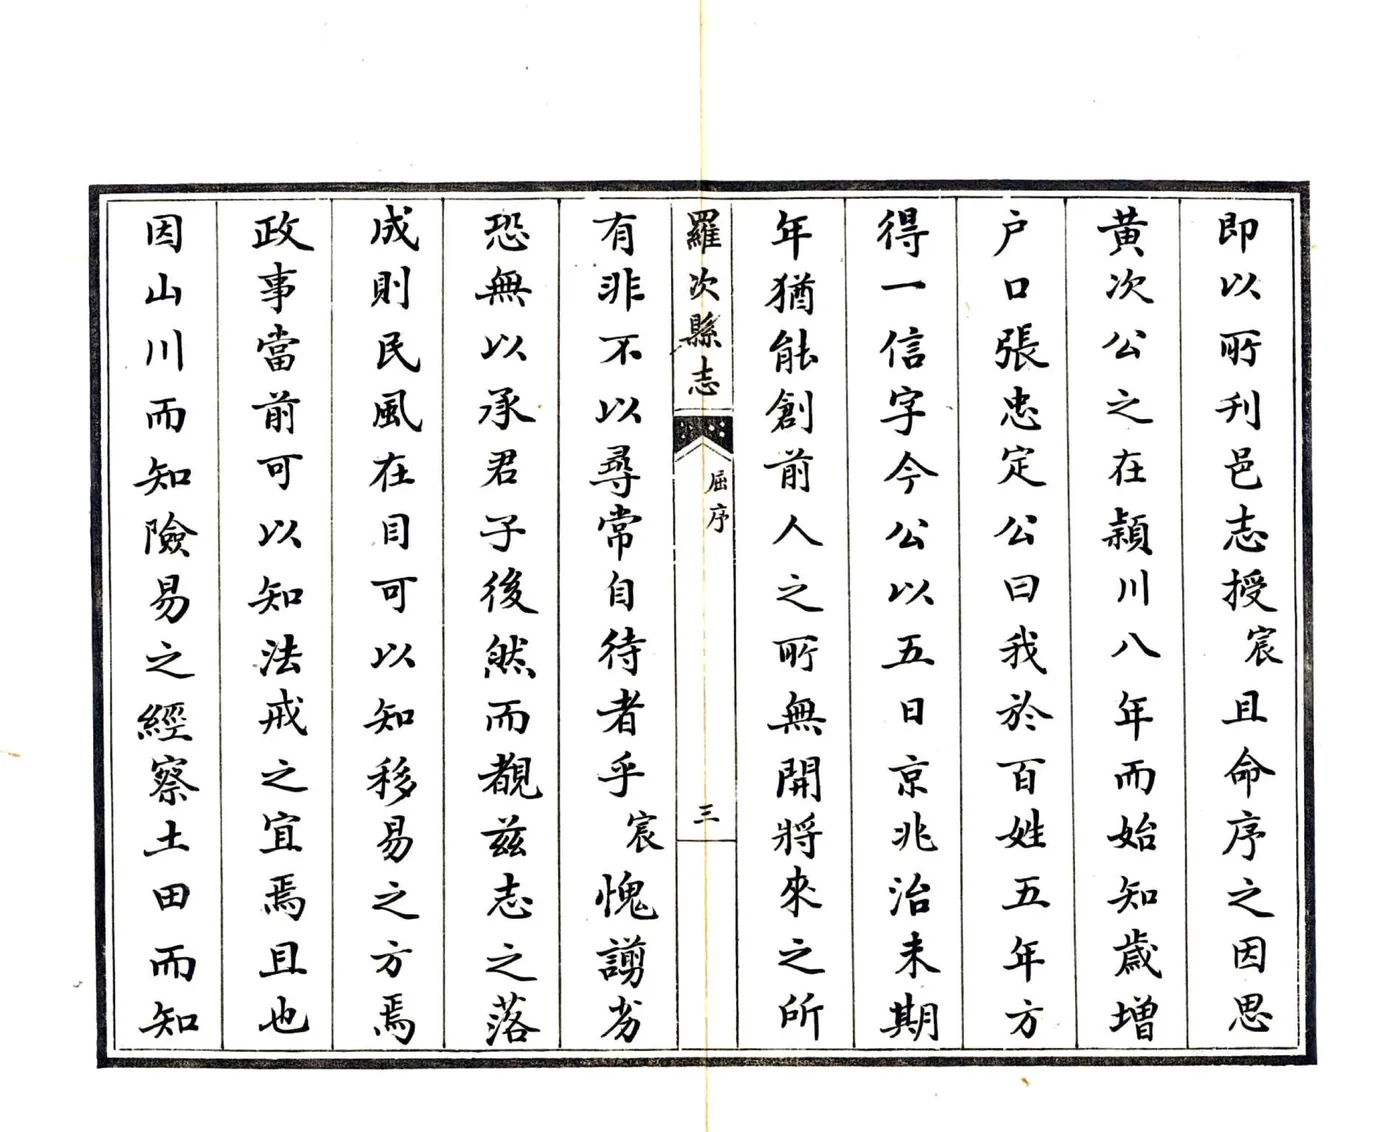 即以所刋邑志授宸且命序之因思
黄次公之在潁川八年而始知歲增
户口張忠定公曰我於百姓五年方
得一信字今公以五日京兆治未期
年猶能創前人之所無開將來之所
羅次縣志
屈序
三
有非不以尋常自待者乎宸愧謭劣
恐無以承君子後然而覩兹志之落
成則民風在目可以知移易之方焉
政事當前可以知法戒之宜焉且也
因山川而知險易之經察土田而知